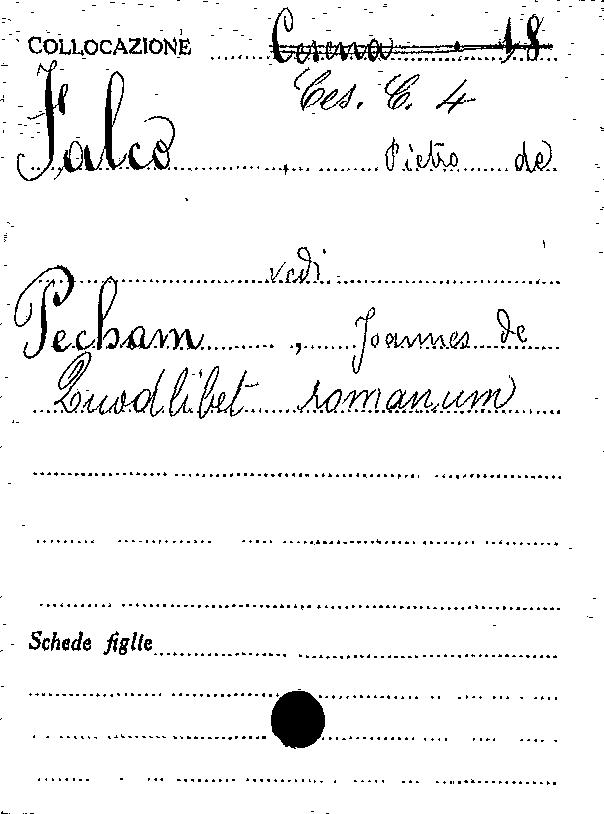 COLLOCAZIONE Cesena . 18
Ces. C. 4
Falco , Pietro de
vedi
Pecham , Joannes de
Quodlibet romanum
Schede figlie